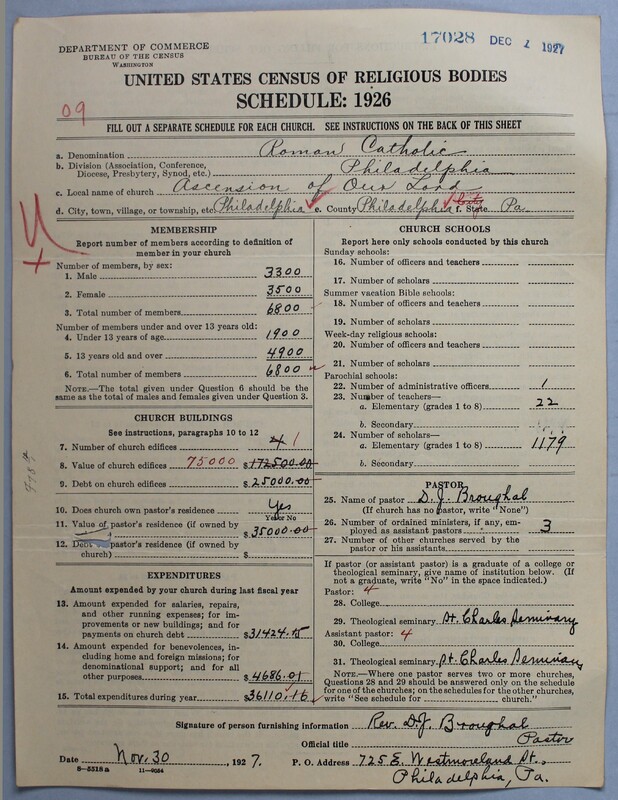 17028 DEC 1 1927
DEPARTMENT OF COMMERCE
BUREAU OF THE CENSUS
WASHINGTON
UNITED STATES CENSUS OF RELIGIOUS BODIES
SCHEDULE: 1926
09
FILL OUT A SEPARATE SCHEDULE FOR EACH CHURCH. SEE INSTRUCTIONS ON THE BACK OF THIS SHEET
a. Denomination Roman Catholic
b. Division (Association, Conference,
Diocese, Presbytery, Synod, etc.) Philadelphia
c. Local name of church Ascension of Our Lord
d. City, town, village, or township, etc. Philadelphia e. County Philadelphia f. State Pa.
MEMBERSHIP
Report number of members according to definition of
member in your church
Number of members, by sex:
1. Male 3300
2. Female 3500
3. Total number of members 6800
Number of members under and over 13 years old:
4. Under 13 years of age 1900
5. 13 years old and over 4900
6. Total number of members 6800
NOTE.—The total given under Question 6 should be
same as the total of males and females given under Question 3.
CHURCH BUILDINGS
See instructions, paragraphs 10 to 12
7. Number of church edifices 4 1
8. Value of church edifices 75000 $172500.00
9. Debt on church edifices $25000.00
10. Does church own pastor's residence Yes
Yes or No
11. Value of pastor's residence (if owned by
church) $35000.00
12. Debt pastor's residence (if owned by
church) $
EXPENDITURES
Amount expended by your church during last fiscal year
13. Amount expended for salaries, repairs,
and other running expenses; for im-
provements or new buildings; and for
payments on church debt $31424.15
14. Amount expended for benevolences, in-
cluding home and foreign missions; for
denominational support; and for all
other purposes $4686.01
15. Total expenditures during year $36110.16
CHURCH SCHOOLS
Report here only schools conducted by this church
Sunday schools:
16. Number of officers and teachers
17. Number of scholars
Summer vacation Bible schools:
18. Number of officers and teachers
19. Number of scholars
Week-day religious schools:
20. Number of officers and teachers
21. Number of scholars
Parochial schools:
22. Number of administrative officers 1
23. Number of teachers—
a. Elementary (grades 1 to 8) 22
b. Secondary
24. Number of scholars—
a. Elementary (grades 1 to 8) 1179
b. Secondary
PASTOR
25. Name of pastor D. J. Broughal
(If church has no pastor, write "None")
26. Number of ordained ministers, if any, em-
ployed as assistant pastors 3
27. Number of other churches served by the
pastor or his assistants
If pastor (or assistant pastor) is a graduate of a college or
theological seminary, give name of institution below. (If
not a graduate, write "No" in the space indicated.)
Pastor: 4
28. College
29. Theological seminary St. Charles Seminary
Assistant pastor: 4
30. College
31. Theological seminary St. Charles Seminary
NOTE.—Where one pastor serves two or more churches,
Questions 28 and 29 should be answered only on the schedule
for one of the churches; on the schedules for the other churches,
write "See schedule for church."
Signature of person furnishing information Rev. D.J. Broughal
Official title Pastor
Date Nov. 30, 1927. P. O. Address 725 E. Westmoreland St.,
8—5318 a 11—9054
Philadelphia, Pa.